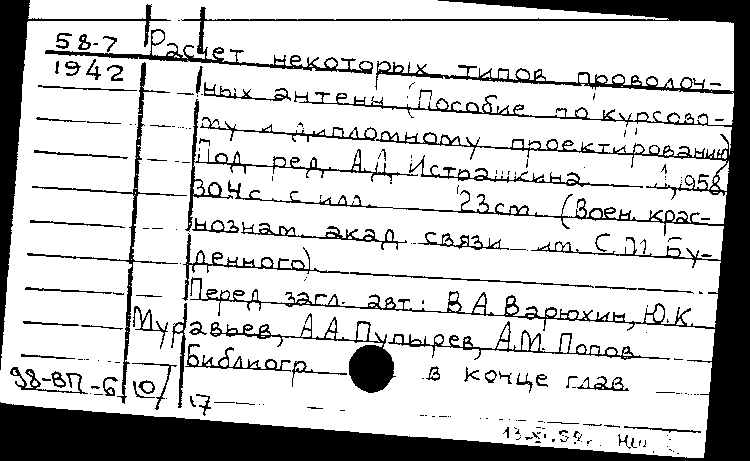 58-7 Расчет некоторых типов проволоч-
1942 ных антенн. (Пособие по курсово-
му и дипломному проектированию)
Под ред. А.Д. Истрашкина. Л, 1958.
304 с. с илл. 23 см. (Воен. крас-
нознам. акад. связи им. С.М. Бу-
денного).
Перед загл. авт.: В.А. Варюхин, Ю.К.
Муравьев, А.А. Пупырев, А.М. Попов
Библиогр. в конце глав.
98-ВП-6 10/
17
13.XI.59.